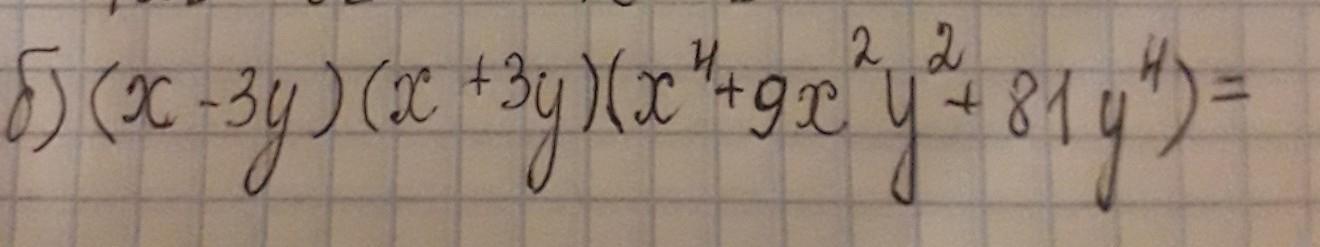 б) (x - 3y)(x + 3y)(x⁴ + 9x²y² + 81y⁴) =